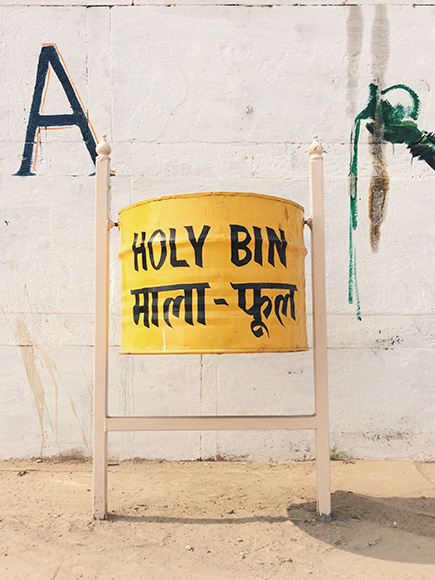 A
HOLY BIN
माला - फूल